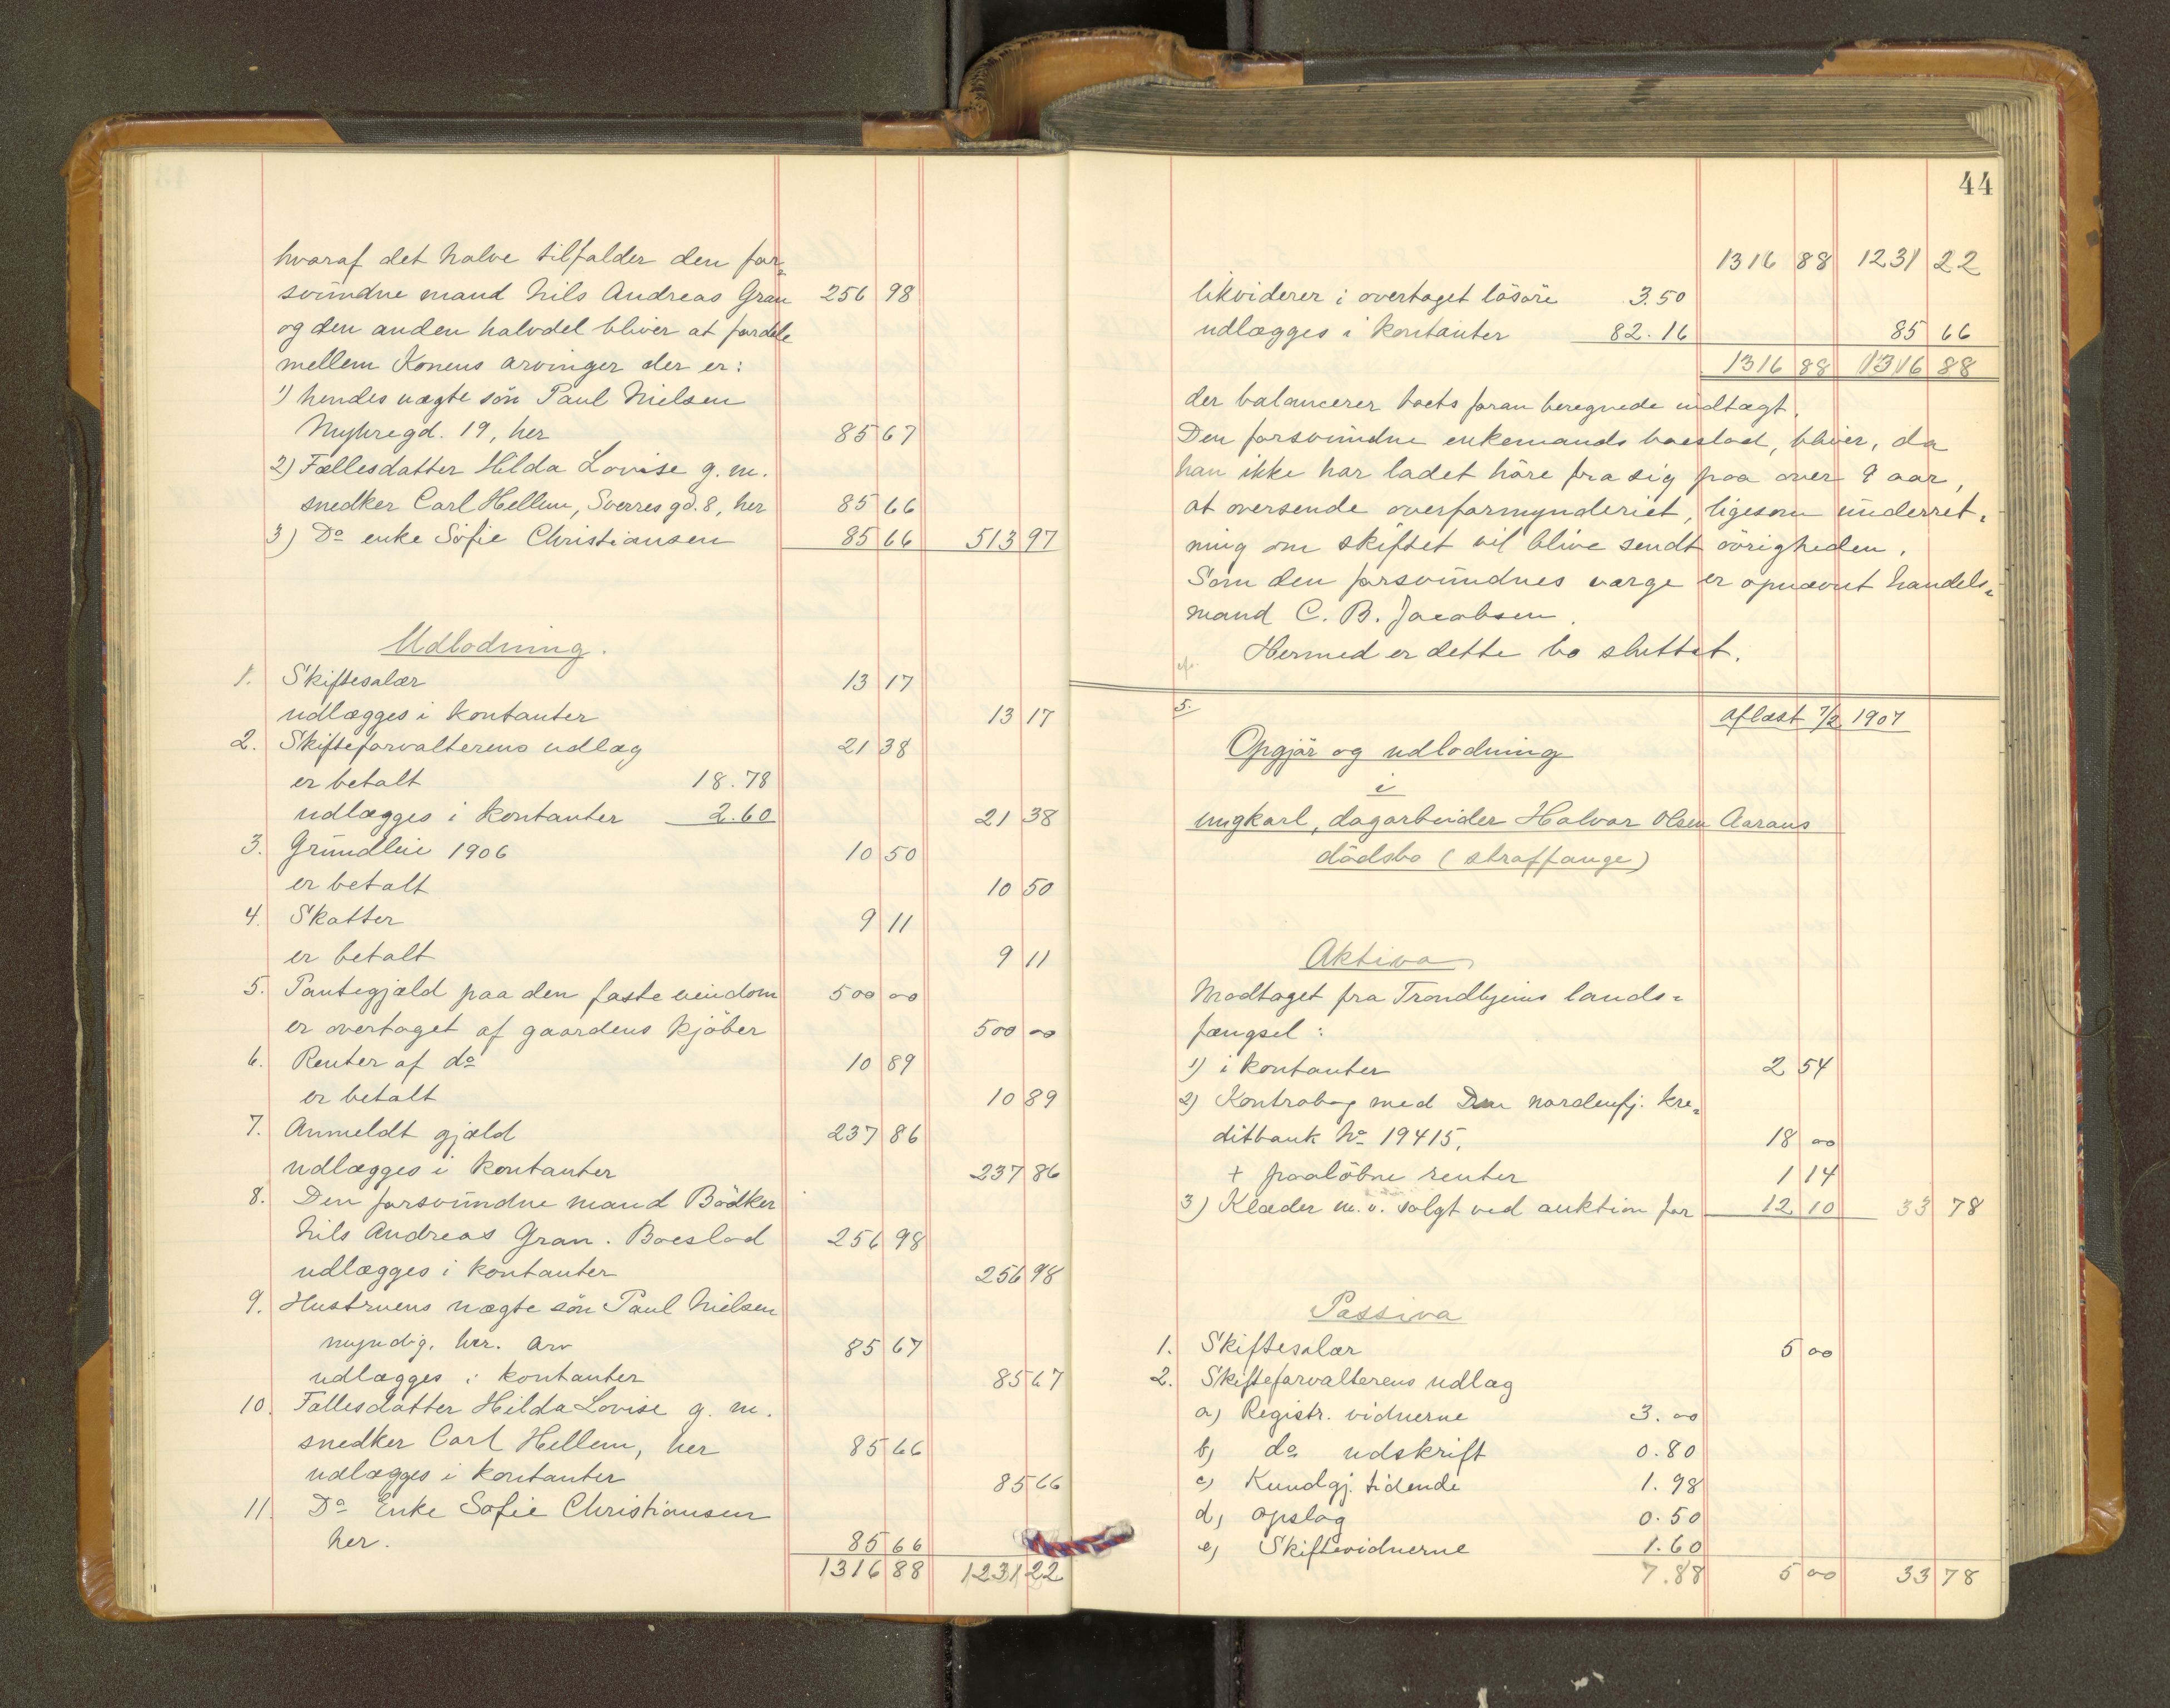 hvoraf det halve tilfalder den for-
svundne mand Nils Andreas Gran 256 98
og den anden halvdel bliver at fordele
mellem Konens arvinger der er:
1) hendes uægte sön Paul Nielsen
Nyhregd. 19, her 85 67
2) Fællesdatter Hilda Lovise g. m.
snedker Carl Hellem, Sverresgd. 8, her 85 66
3) Do enke Sofie Christiansen 85 66 513 97
Udlodning.
1. Skiftesalær 13 17
udlægges i kontanter 13 17
2. Skifteforvalterens udlæg 21 38
er betalt 18.78
udlægges i kontanter 2.60 21 38
3. Grundleie 1906 10 50
er betalt 10 50
4. Skatter 9 11
er betalt 9 11
5. Pantegjæld paa den faste eiendom 500 00
er overtaget af gaardens kjöber 500 00
6. Renter af do 10 89
er betalt 10 89
7. Anmeldt gjæld 237 86
udlægges i kontanter 237 86
8. Den forsvundne mand Bödker
Nils Andreas Gran. Boeslod 256 98
udlægges i kontanter 256 98
9. Hustruens uægte sön Paul Nielsen
myndig, her. Arv 85 67
udlægges i kontanter 85 67
10. Fællesdatter Hilda Lovise g. m.
snedker Carl Hellem, her 85 66
udlægges i kontanter 85 66
11. Do Enke Sofie Christiansen
her. 85 66
1316 88 1231 22
44
1316 88 1231 22
likviderer i overtaget lösöre 3.50
udlægges i kontanter 82.16 85 66
1316 88 1316 88
der balancerer boets foran beregnede indtægt.
Den forsvundne enkemands boeslod, bliver, da
han ikke har ladet höre fra sig paa over 9 aar,
at oversende overformynderiet, ligesom underret-
ning om skiftet vil blive sendt övrigheden.
Som den forsvundnes værge er opnævnt handels-
mand C. B. Jacobsen.
Hermed er dette bo sluttet.
5. Aflæst 7/2 1907
Opgjör og udlodning
i
ungkarl, dagarbeider Halvor Olsen Aaraus
dödsbo (straffange)
Aktiva
Modtaget fra Trondhjems lands-
fængsel:
1) i kontanter 2 54
2) Kontrabog med Den nordenfj. kre-
ditbank No 19415. 18 00
+ paalöbne renter 1 14
3) Klæder m. v. solgt ved auktion for 12 10 33 78
Passiva
1. Skiftesalær 5 00
2. Skifteforvalterens udlæg
a) Registr. vidnerne 3.00
b) do udskrift 0.80
c) Kundgj. tidende 1.98
d) opslag 0.50
e) Skiftevidnerne 1.60
7.88 5 00 33 78